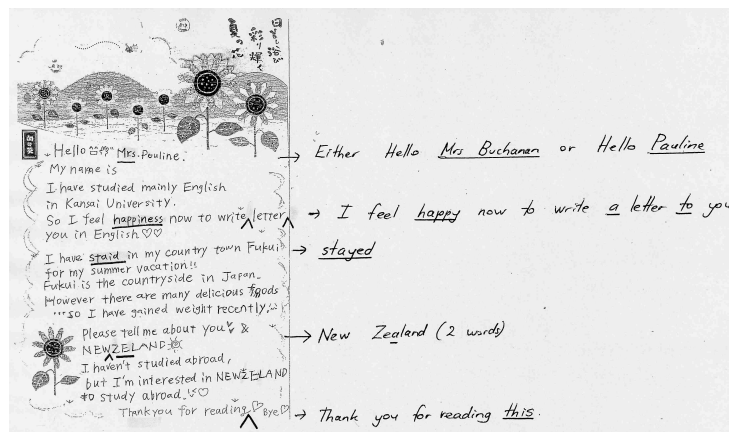 日ざし浴び
彩り輝く
夏の花
Hello Mrs. Pouline.
My name is
I have studied mainly English
in Kansai University.
So I feel happiness now to write letter
you in English♡♡
I have staid in my country town Fukui
for my summer vacation!!
Fukui is the countryside in Japan.
However there are many delicious foods
...so I have gained weight recently.
Please tell me about you &
NEWZELAND
I haven't studied abroad,
but I'm interested in NEWZELAND
to study abroad.♡
Thankyou for reading♡ Bye♡
→ Either Hello Mrs Buchanan or Hello Pauline
→ I feel happy now to write a letter to you
→ stayed
→ New Zealand (2 words)
→ Thank you for reading this.